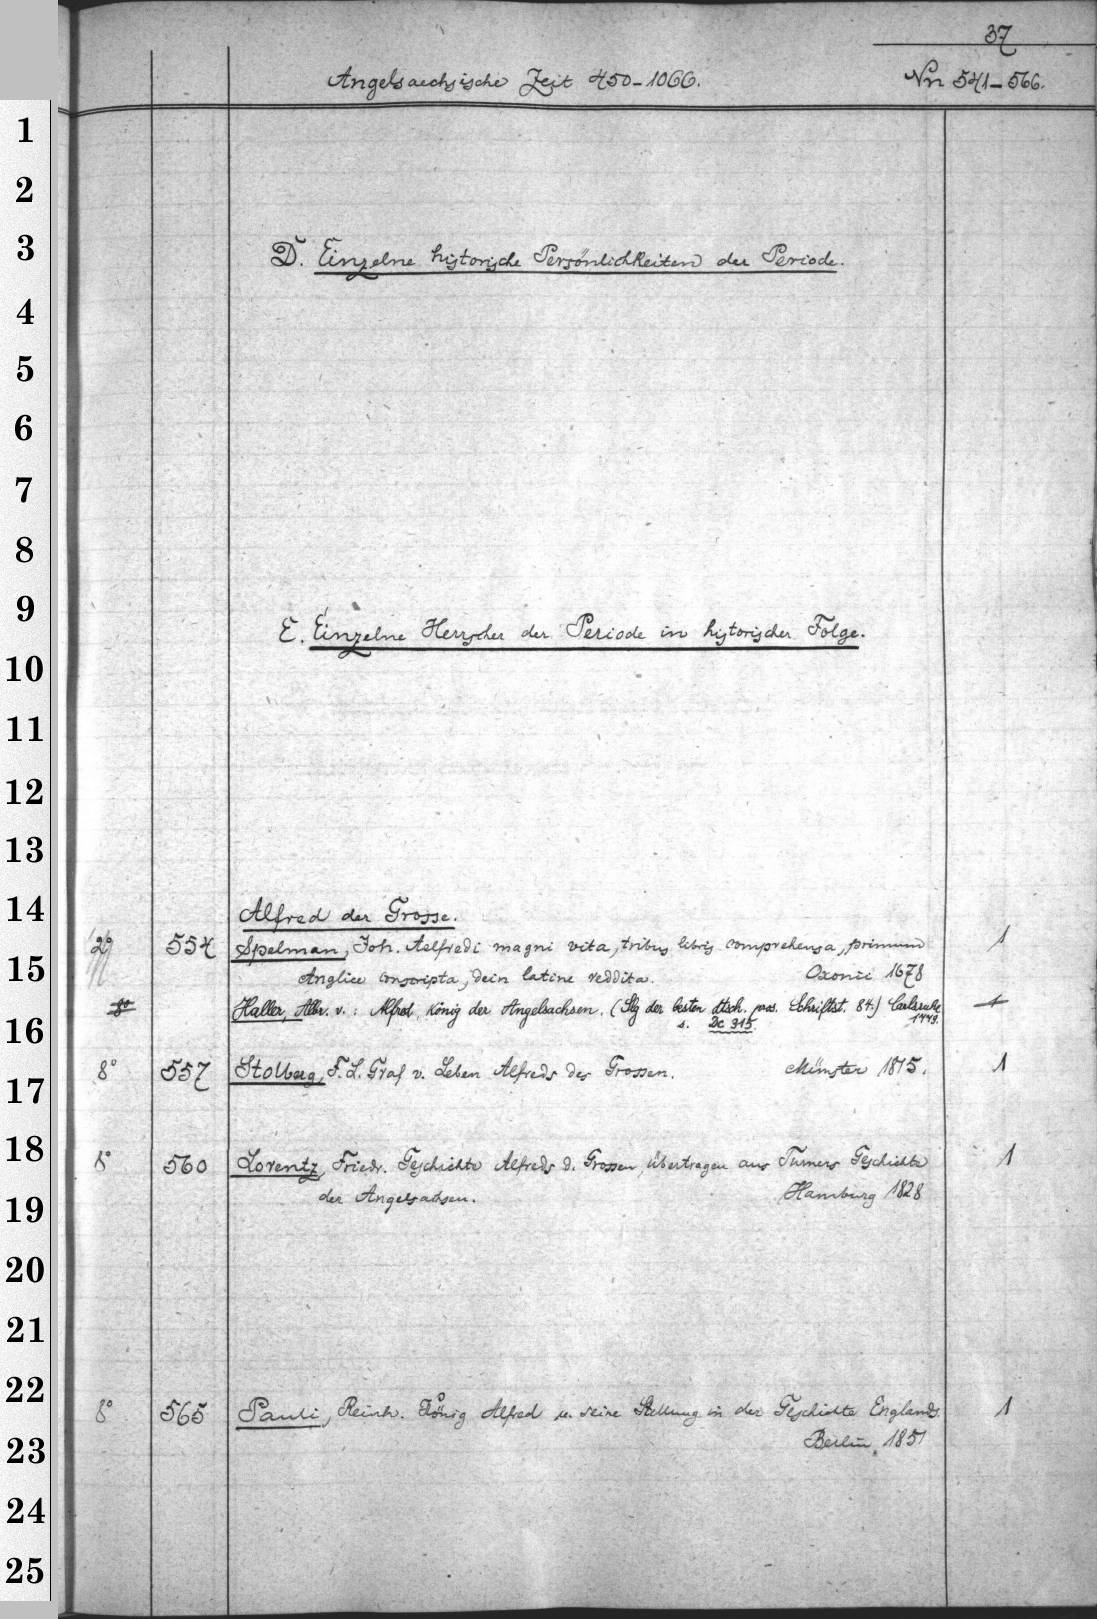 37
Angelsaechsische Zeit 450-1066. Nrn 541-566.
1
2
3
D. Einzelne historische Persönlichkeiten der Periode.
4
5
6
7
8
9
E. Einzelne Herrscher der Periode in historischer Folge.
10
11
12
13
14
Alfred der Grosse.
2° 554 Spelman, Joh. Aelfredi magni vita, tribus libris comprehensa, primum 1
15
Anglice conscripta, dein latine reddita. Oxonii 1678
8° Haller, Albr. v.: Alfred, König der Angelsachsen. (Slg der besten dtsch. pros. Schriftst. 84.) Carlsruhe 1
1779.
16
s. Dc 315
8° 557 Stolberg, F. L. Graf v. Leben Alfreds des Grossen. Münster 1815. 1
17
18
8° 560 Lorentz, Friedr. Geschichte Alfreds d. Grossen, übertragen aus Turners Geschichte 1
19
der Angelsachsen. Hamburg 1828
20
21
22
8° 565 Pauli, Reinh. König Alfred u. seine Stellung in der Geschichte Englands. 1
23
Berlin, 1851
24
25